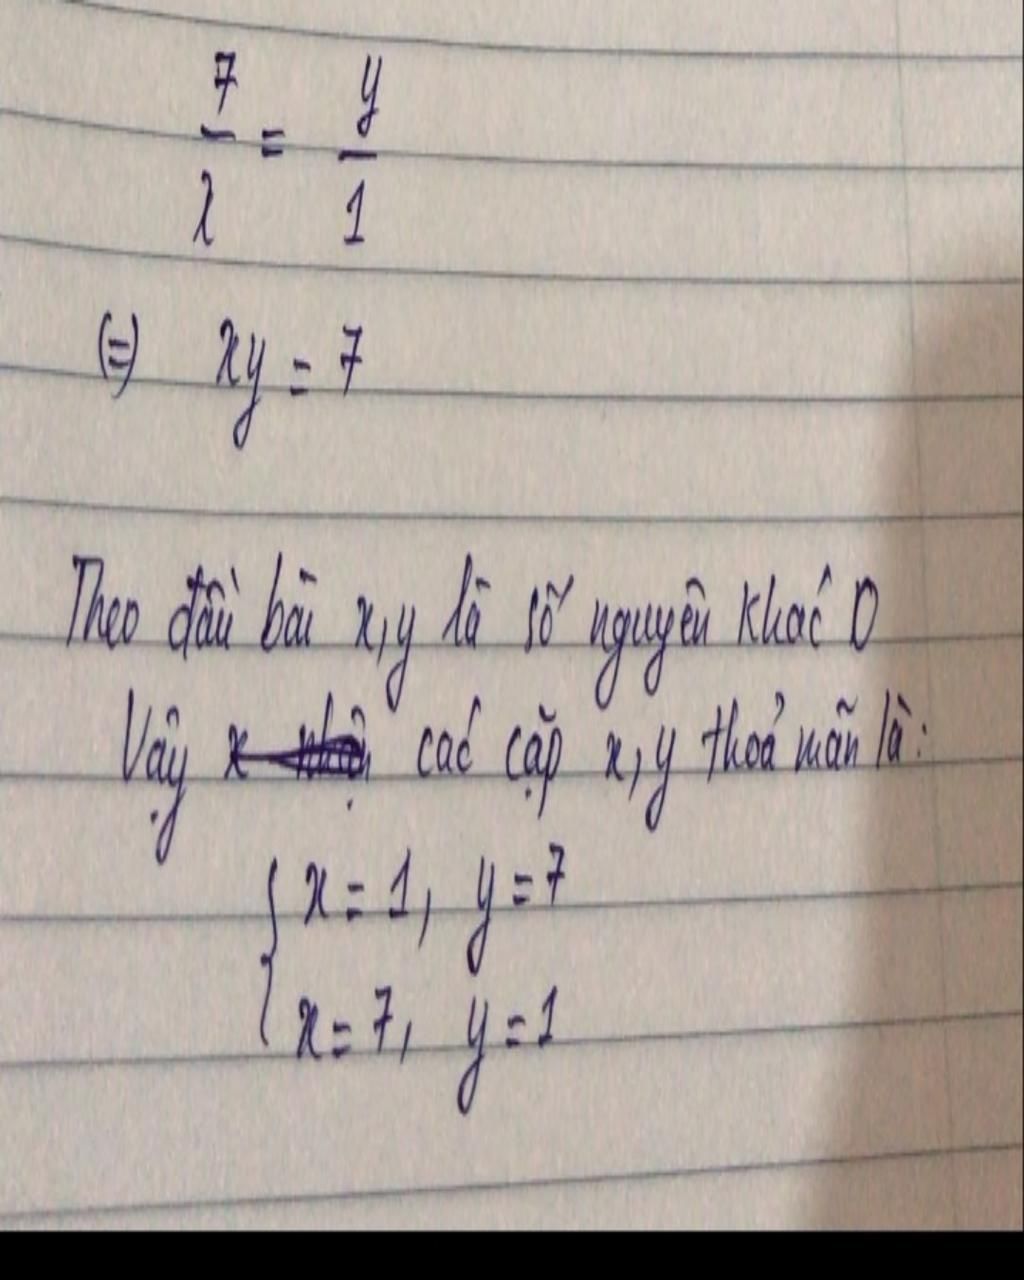 7/x = y/1
(=) xy = 7
Theo đầu bài x,y là số nguyên khác 0
Vậy x các cặp x,y thoả mãn là:
{ x = 1, y = 7
x = 7, y = 1